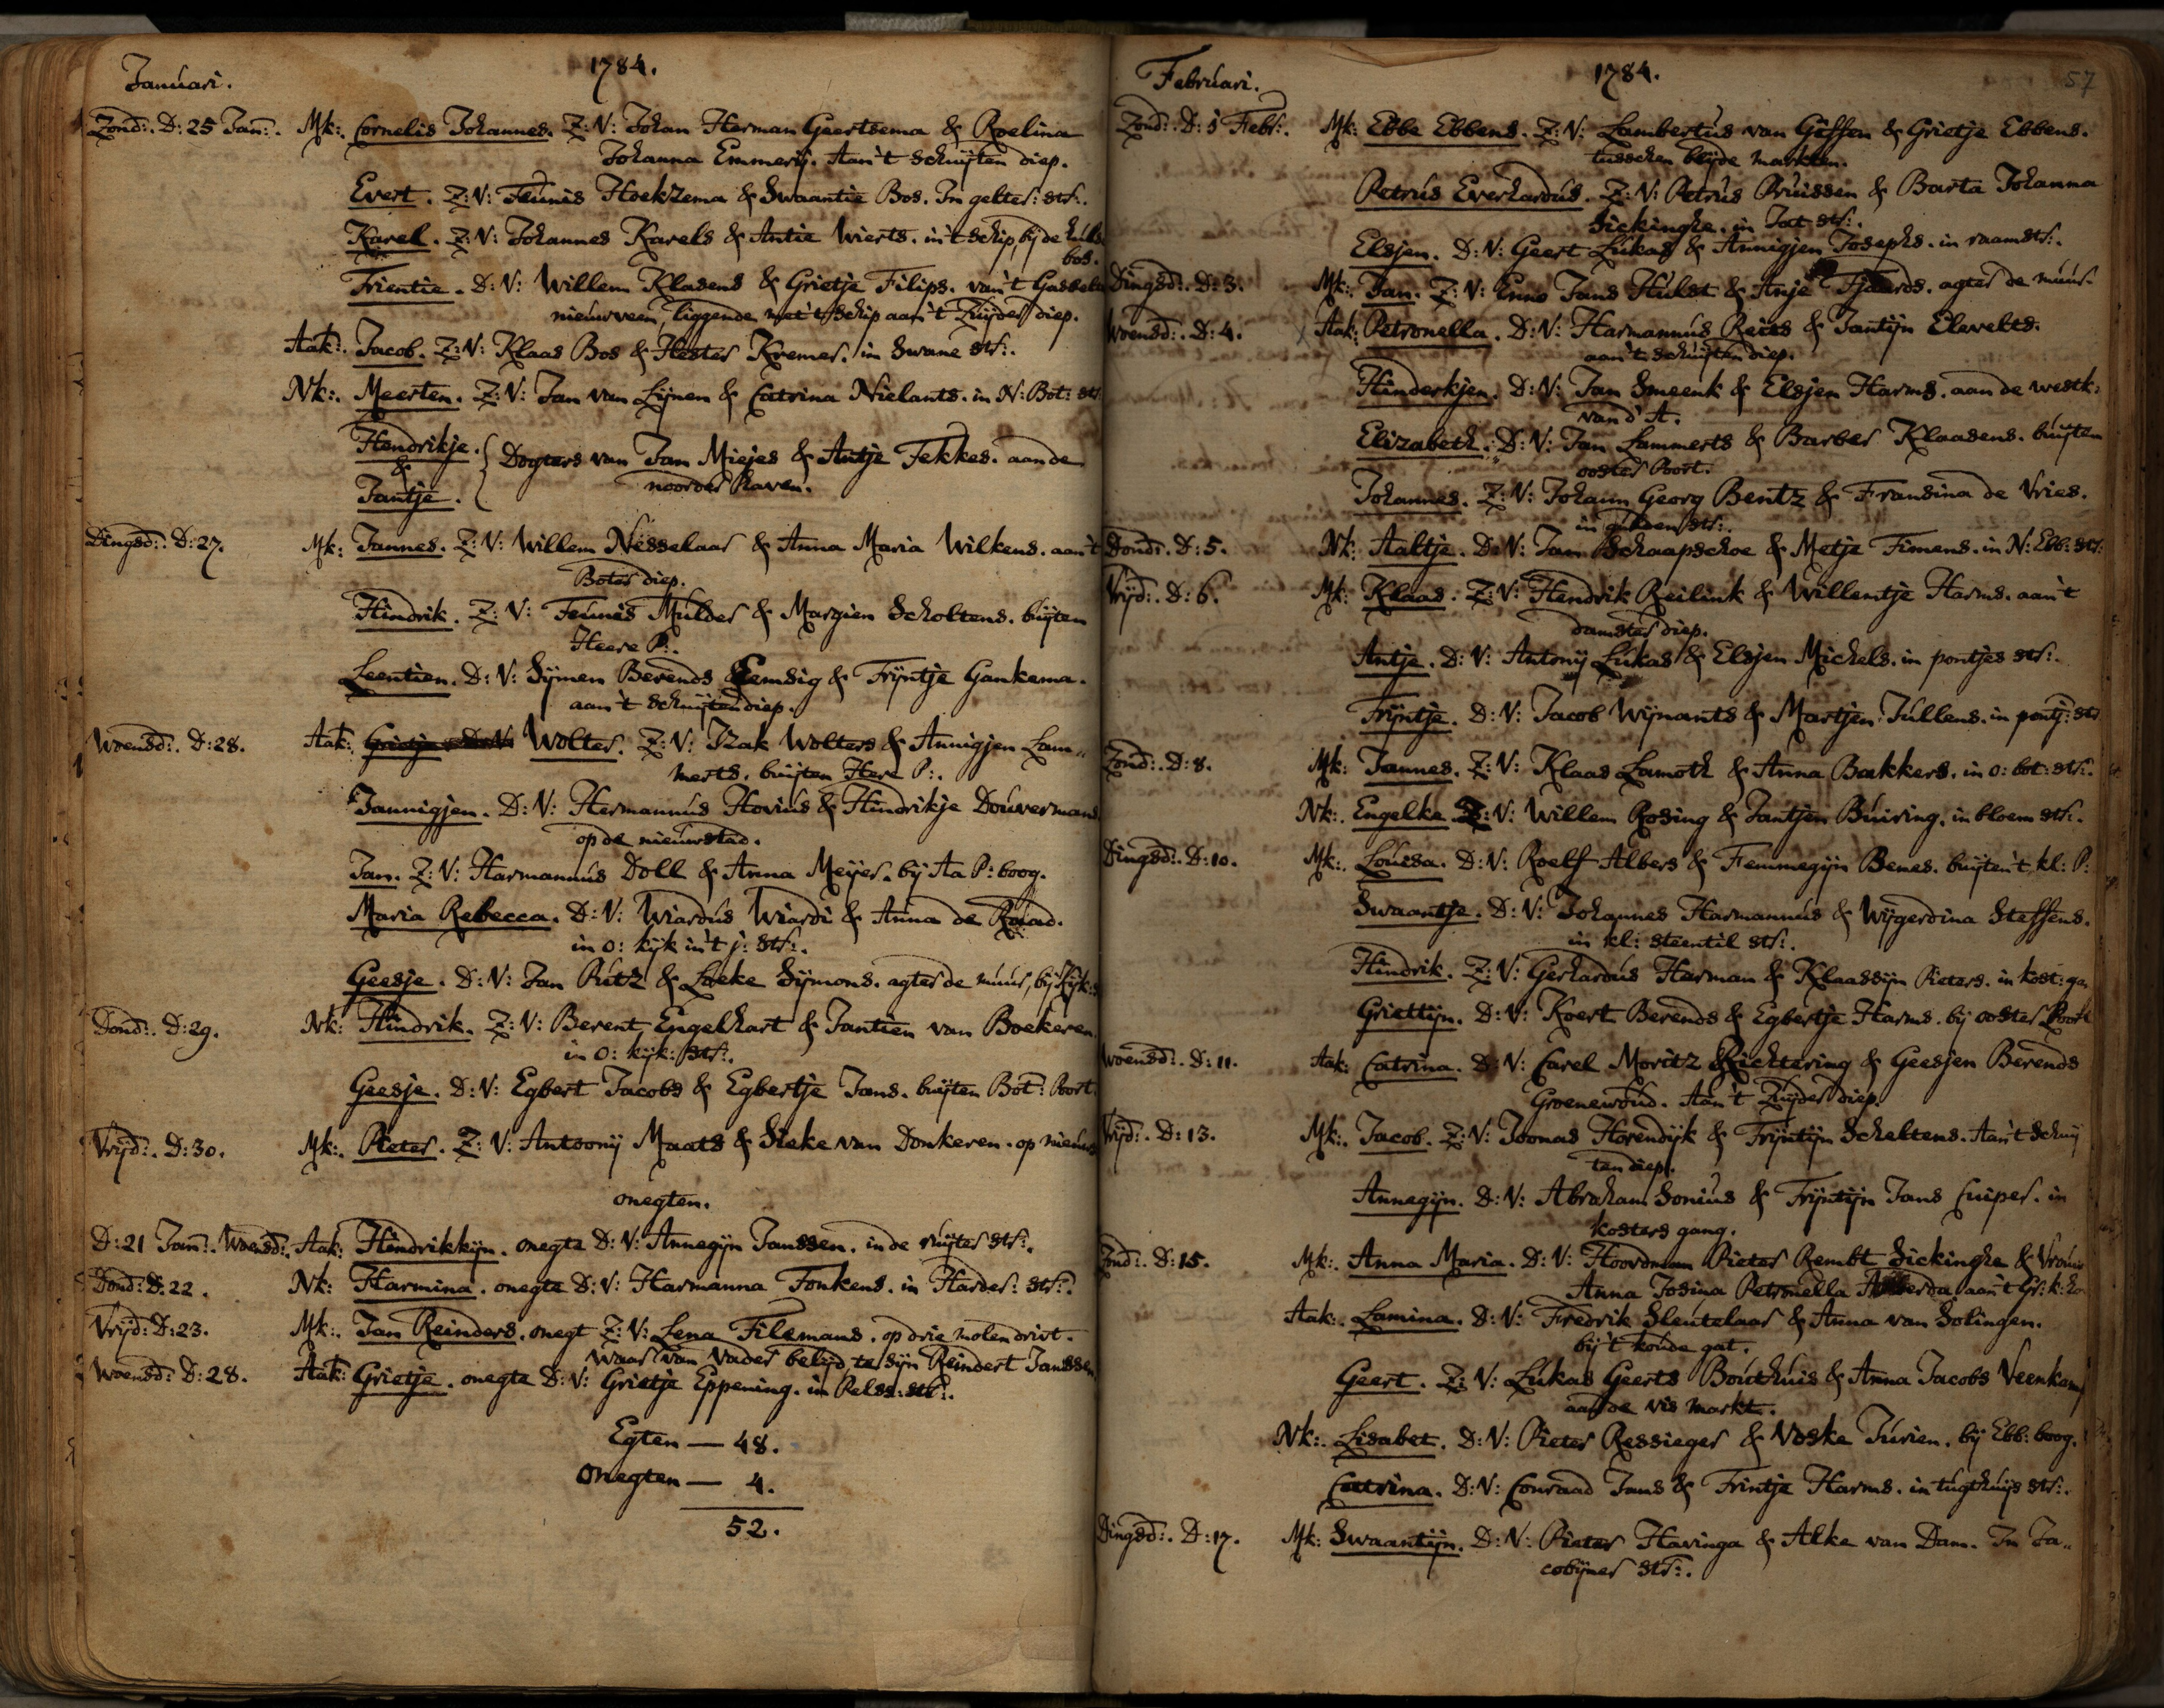 Januari.
1784.
Zond:. D: 25 Jan:. Mk:. Cornelis Johannes. Z: V: Johan Herman Geertsema & Roelina
Johanna Emmerij. Aan't schuijten diep.
Evert. Z: V: Teunis Hoekzema & Swaantie Bos. In gelter: str:.
Karel. Z: V: Johannes Karels & Antie Wierts. in't schip, bij de
bos.
Trientie. D: V: Willem Klasens & Grietje Filips. van't
nieuwveen, liggende met 't schip aan 't Zuijder diep.
Aak:. Jacob. Z: V: Klaas Bos & Hester Kremer. in Swane str:.
Nk:. Meerten. Z: V: Jan van Lijnen & Catrina Nielants. in N: Bot: str
Hendrikje.
& { Dogters van Jan Miejes & Antje Fekkes. aan de
Jantje. noorder haven.
Dingsd:. D: 27. Mk: Jannes. Z: V: Willem Nesselaar & Anna Maria Wilkens. aan't
Boter diep.
Hindrik. Z: V: Teunis Mulder & Margien Scholtens. buijten
Heere P:.
Leentien. D: V: Sijmen Berends Eemsig & Trijntje Gankema.
aan 't schuijten diep.
Woensd:. D: 28. Aak: Grietje D: V: Wolter. Z: V: Izak Wolters & Annigjen Lam„
merts. buijten Here P:.
Jannigjen. D: V: Hermannus Hovius & Hindrikje Douwermans
op de nieuwstad.
Jan. Z: V: Harmannus Doll & Anna Meijer. bij Aa P: boog.
Maria Rebecca. D: V: Wiardus Wiardi & Anna de Raad.
in o: kijk in't j: str:.
Geesje. D: V: Jan Putz & Loeke Sijmons. agter de muur, bij
Dond:. D: 29. Nk: Hindrik. Z: V: Berent Engelhart & Jantien van Boekeren.
in O: kijk: str:.
Geesje. D: V: Egbert Jacobs & Egbertje Jans. buijten Bot: Poort.
Vrijd:. D: 30. Mk:. Pieter. Z: V: Antoonij Maats & Sieke van Donkeren. op nieuws
onegten.
D: 21 Jan:. Woensd:. Aak: Hindrikkijn. onegte D: V: Annegijn Janssen. in de ruijter str:.
Dond: D: 22. Nk: Harmina. onegte D: V: Harmanna Fonkens. in Harder: str:.
Vrijd: D: 23. Mk:. Jan Reinders. onegt Z: V: Lena Tilemans. op drie molendrift.
waar van Vader belijd te sijn Reindert Janssen
Woensd: D: 28. Aak: Grietje. onegte D: V: Grietje Eppening. in Pelst: str:.
Egten — 48.
onegten — 4.
52.
Februari.
1784.
57
Zond:. D: 1 Febr:. Mk: Ebbe Ebbens. Z: V: Lambertus van Giffen & Grietje Ebbens.
tusschen beijde markten.
Petrus Everhardus. Z: V: Petrus Pruissen & Barta Johanna
Sickinghe. in Jat str:.
Elsjen. D: V: Geert Lukas & Annigjen Josephs. in raamstr:.
Dingsd:. D: 3. Mk:. Jan. Z: V: Enno Jans Hulst & Anje Tjaards. agter de muur.
Woensd:. D: 4. Aak: Petronella. D: V: Harmannus Reits & Jantijn Elevelts.
aan't schuijten diep.
Hinderkjen. D: V: Jan Smeenk & Elsjen Harms. aan de westk:
van d' A.
Elizabeth. D: V: Jan Lammerts & Barber Klaasens. buijten
ooster Poort.
Johannes. Z: V: Johann Georg Bentz & Fransina de Vries.
in gulden str:.
Dond:. D: 5. Nk: Aaltje. D: V: Jan Schaapschoe & Metje Timens. in N: Ebb: str:
Vrijd:. D: 6. Mk: Klaas. Z: V: Hendrik Reilink & Willemtje Harms. aan't
damster diep.
Antje. D: V: Antonij Lukas & Elsjen Michels. in pontjes str:.
Trijntje. D: V: Jacob Wijnants & Martjen Jullens. in pontj: str
Zond:. D: 8. Mk: Jannes. Z: V: Klaas Lamoth & Anna Bakkers. in o: bot: str:.
Nk:. Engelke Z: V: Willem Rosing & Jantjen Buiring. in bloem str:.
Dingsd:. D: 10. Mk:. Louisa. D: V: Roelf Albers & Femmegijn Benes. buijten't kl: P:
Swaantje. D: V: Johannes Harmannus & Wijgerdina Steffens.
in kl: steentil str:.
Hindrik. Z: V: Gerhardus Harman & Klaassijn Pieters. in kost: ga
Griettijn. D: V: Koert Berends & Egbertje Harms. bij ooster Poort
Woensd:. D: 11. Aak: Catrina. D: V: Carel Moritz Richtering & Geesjen Berends
Groenewoud. Aan't Zuijder diep.
Vrijd:. D: 13. Mk:. Jacob. Z: V: Joonas Horendijk & Trijntijn Scheltens. Aan't schuij
ten diep.
Annegijn. D: V: Abraham Sonius & Trijntijn Jans Cuiper. in
kosters gang.
Zond:. D: 15. Mk:. Anna Maria. D: V: Hoordman Pieter Rembt Sickinghe & Vrouw
Anna Josina Petronella Alberda aan't Gr: k: ho
Aak:. Lamina. D: V: Fredrik Sleutelaar & Anna van Solingen.
bij't koude gat.
Geert. Z: V: Lukas Geerts Bouthuis & Anna Jacobs Veenkamp
aan de vis markt.
Nk:. Lisabet. D: V: Pieter Ressieger & Noske Jurien. bij Ebb: boog.
Catrina. D: V: Conraad Jans & Trintje Harms. in tugthuijs str:.
Dingsd:. D: 17. Mk: Swaantijn. D: V: Pieter Havinga & Alke van Dam. In Ja„
cobijner str:.